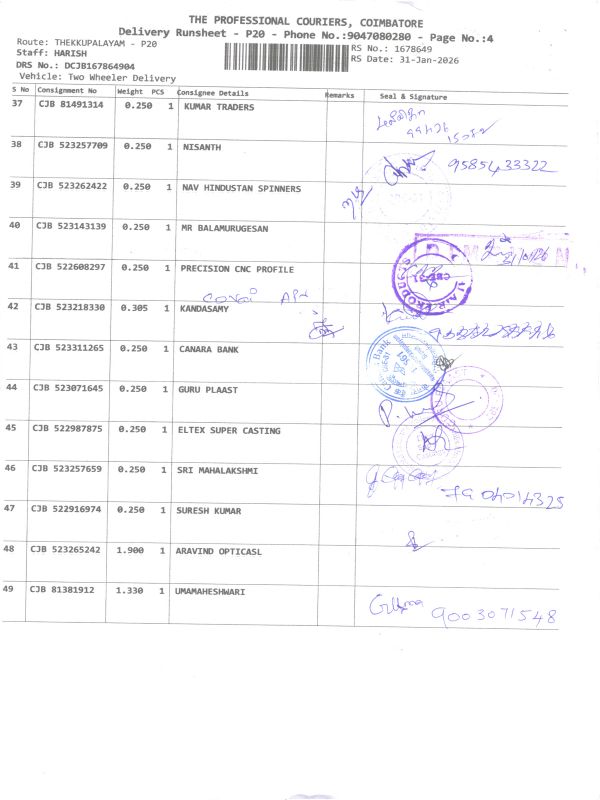 THE PROFESSIONAL COURIERS, COIMBATORE
Delivery Runsheet - P20 - Phone No.:9047080280 - Page No.:4
Route: THEKKUPALAYAM - P20 RS No.: 1678649
Staff: HARISH RS Date: 31-Jan-2026
DRS No.: DCJB167864904
Vehicle: Two Wheeler Delivery
S No Consignment No Weight PCS Consignee Details Remarks Seal & Signature
37 CJB 81491314 0.250 1 KUMAR TRADERS
38 CJB 523257709 0.250 1 NISANTH 9585433322
39 CJB 523262422 0.250 1 NAV HINDUSTAN SPINNERS
40 CJB 523143139 0.250 1 MR BALAMURUGESAN
41 CJB 522608297 0.250 1 PRECISION CNC PROFILE
42 CJB 523218330 0.305 1 KANDASAMY
43 CJB 523311265 0.250 1 CANARA BANK
44 CJB 523071645 0.250 1 GURU PLAAST
45 CJB 522987875 0.250 1 ELTEX SUPER CASTING
46 CJB 523257659 0.250 1 SRI MAHALAKSHMI
47 CJB 522916974 0.250 1 SURESH KUMAR
48 CJB 523265242 1.900 1 ARAVIND OPTICASL
49 CJB 81381912 1.330 1 UMAMAHESHWARI
9003071548